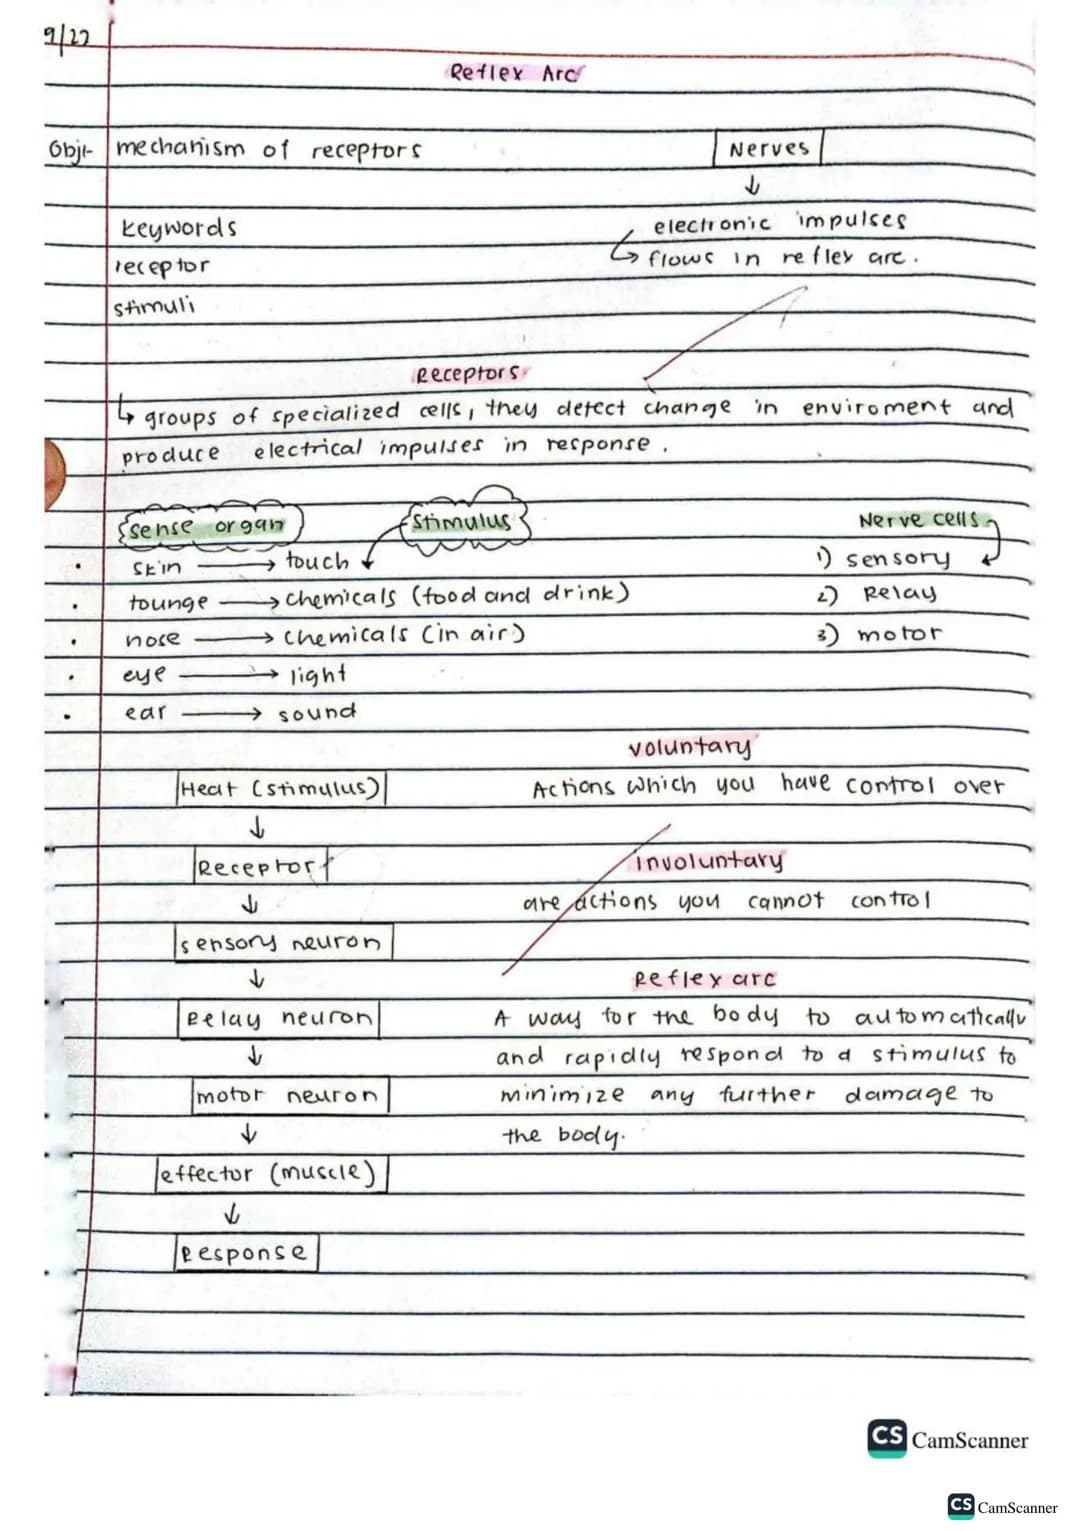 9/27
Reflex Arc
Obj:- mechanism of receptors
Nerves
↓
keywords
receptor
stimuli
electronic impulses
↳ flows in reflex arc.
Receptors
↳ groups of specialized cells, they detect change in enviroment and
produce electrical impulses in response.
Sense organ
Stimulus
Nerve cells
• skin → touch
• tounge → chemicals (food and drink)
• nose → chemicals (in air)
• eye → light
• ear → sound
1) sensory
2) Relay
3) motor
Heat (stimulus)
↓
Receptor
↓
sensory neuron
↓
Relay neuron
↓
motor neuron
↓
effector (muscle)
↓
Response
voluntary
Actions which you have control over
Involuntary
are actions you cannot control
Reflex arc
A way for the body to automatically
and rapidly respond to a stimulus to
minimize any further damage to
the body.
CS CamScanner
CS CamScanner